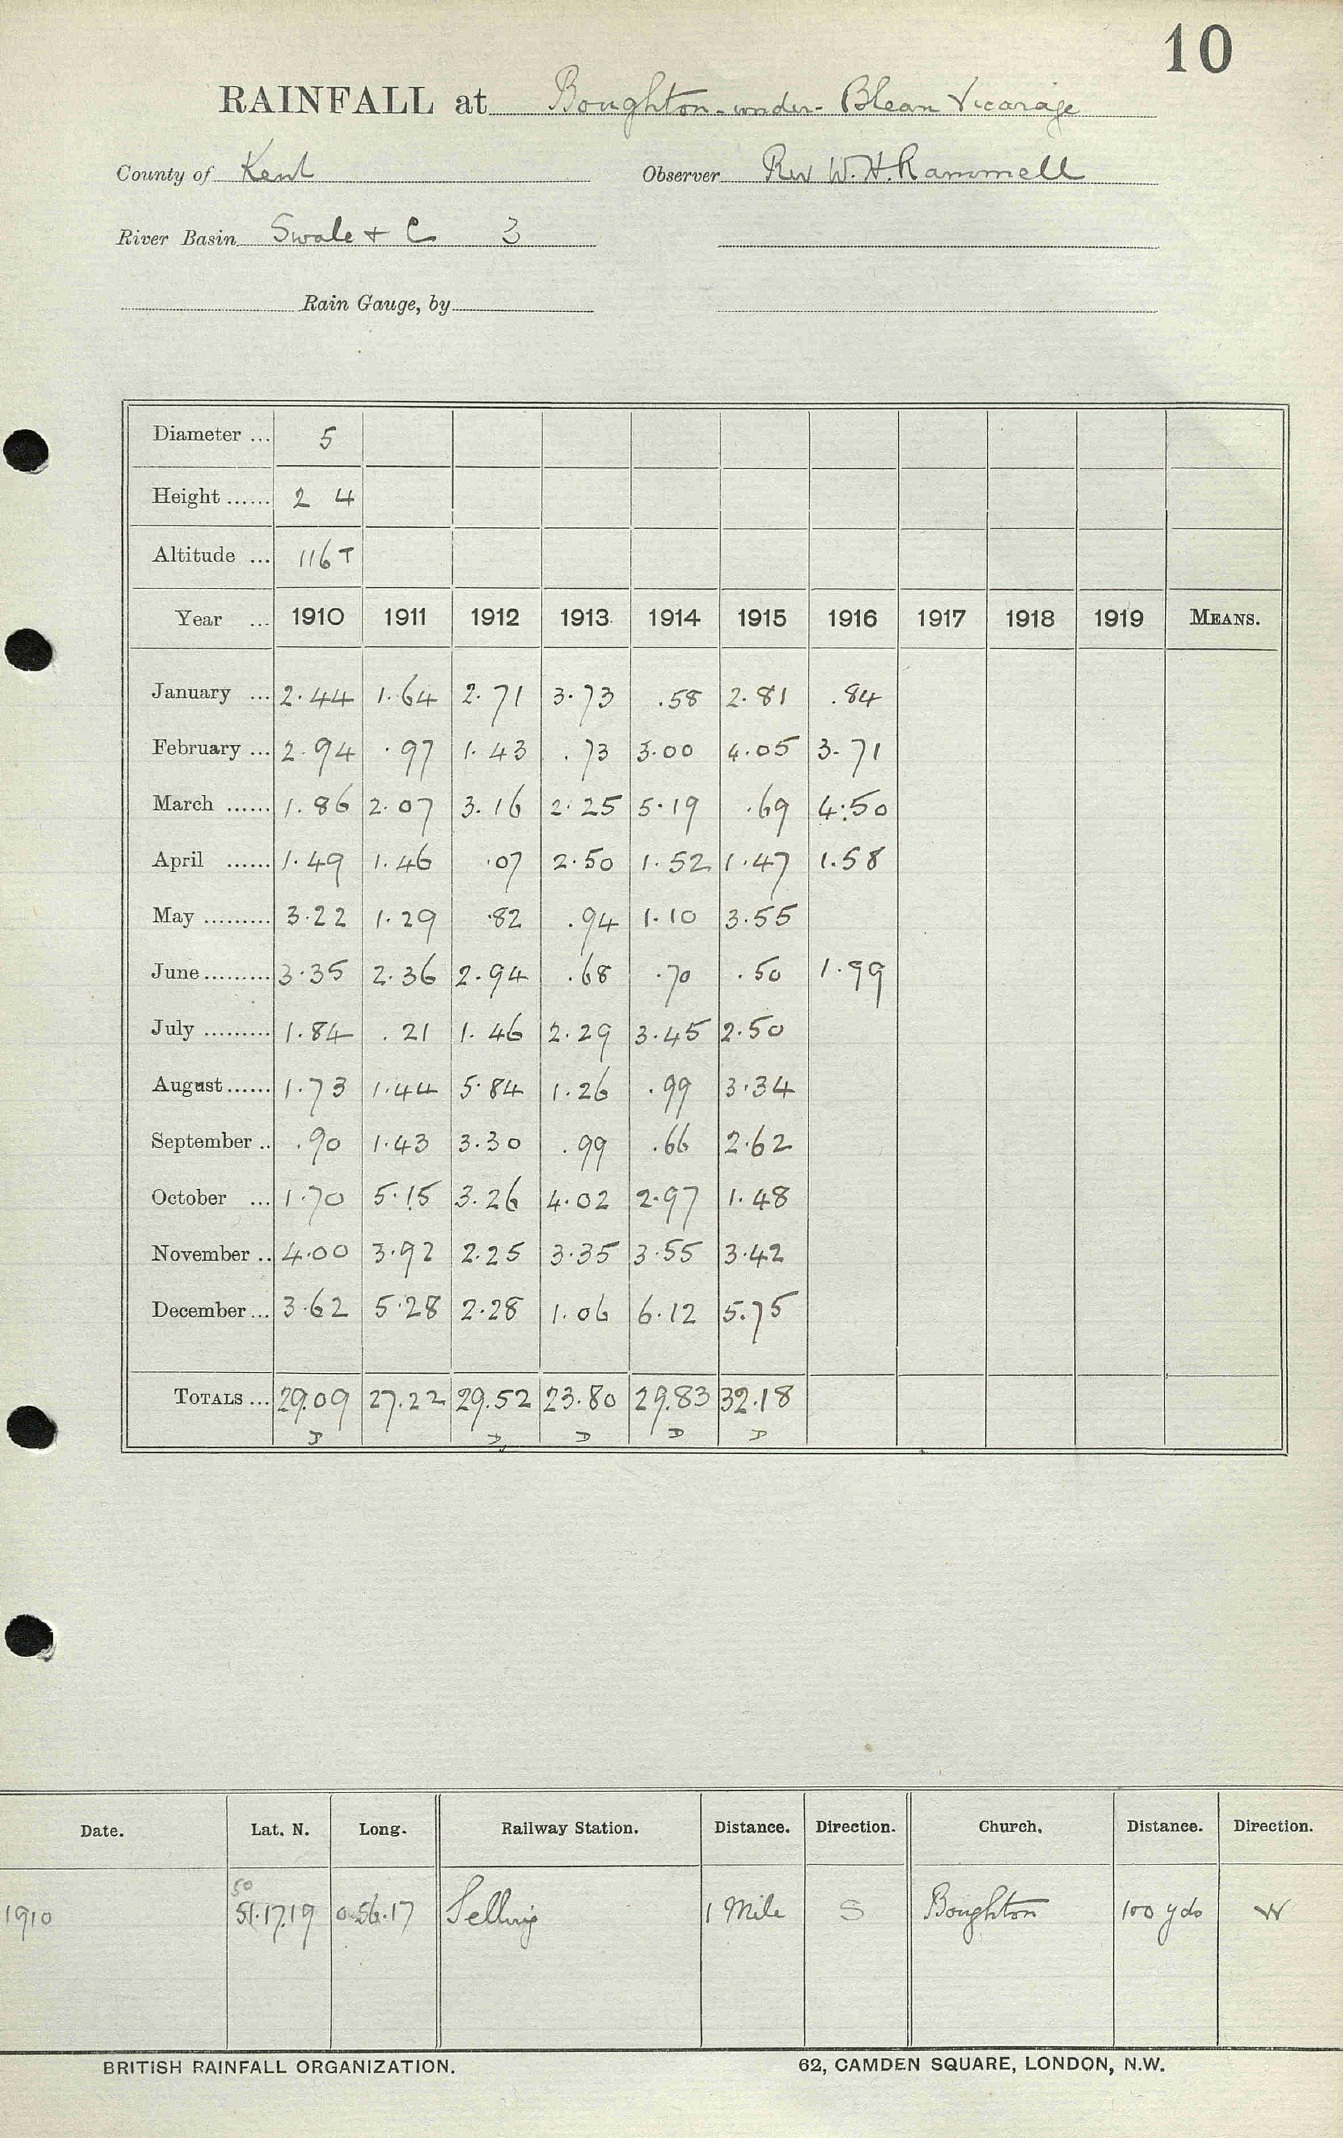 10
RAINFALL at Boughton-under-Blean Vicarage
County of Kent Observer Rev W. H. Rammell
River Basin Swale + C 3
Rain Gauge, by
Diameter ... 5
Height ...... 2 4
Altitude ... 116 T
Year ... 1910 1911 1912 1913 1914 1915 1916 1917 1918 1919 MEANS.
January ... 2.44 1.64 2.71 3.73 .58 2.81 .84
February ... 2.94 .97 1.43 .73 3.00 4.05 3.71
March ...... 1.86 2.07 3.16 2.25 5.19 .69 4.50
April ...... 1.49 1.46 .07 2.50 1.52 1.47 1.58
May ......... 3.22 1.29 .82 .94 1.10 3.55
June ......... 3.35 2.36 2.94 .68 .70 .50 1.99
July ......... 1.84 .21 1.46 2.29 3.45 2.50
August ...... 1.73 1.44 5.84 1.26 .99 3.34
September .. .90 1.43 3.30 .99 .66 2.62
October ... 1.70 5.15 3.26 4.02 2.97 1.48
November .. 4.00 3.92 2.25 3.35 3.55 3.42
December ... 3.62 5.28 2.28 1.06 6.12 5.75
TOTALS ... 29.09 27.22 29.52 23.80 29.83 32.18
D D D D D
Date. Lat. N. Long. Railway Station. Distance. Direction. Church. Distance. Direction.
50
1910 51.17.19 0.56.17 Selling 1 Mile S Boughton 100 yds W
BRITISH RAINFALL ORGANIZATION. 62, CAMDEN SQUARE, LONDON, N.W.